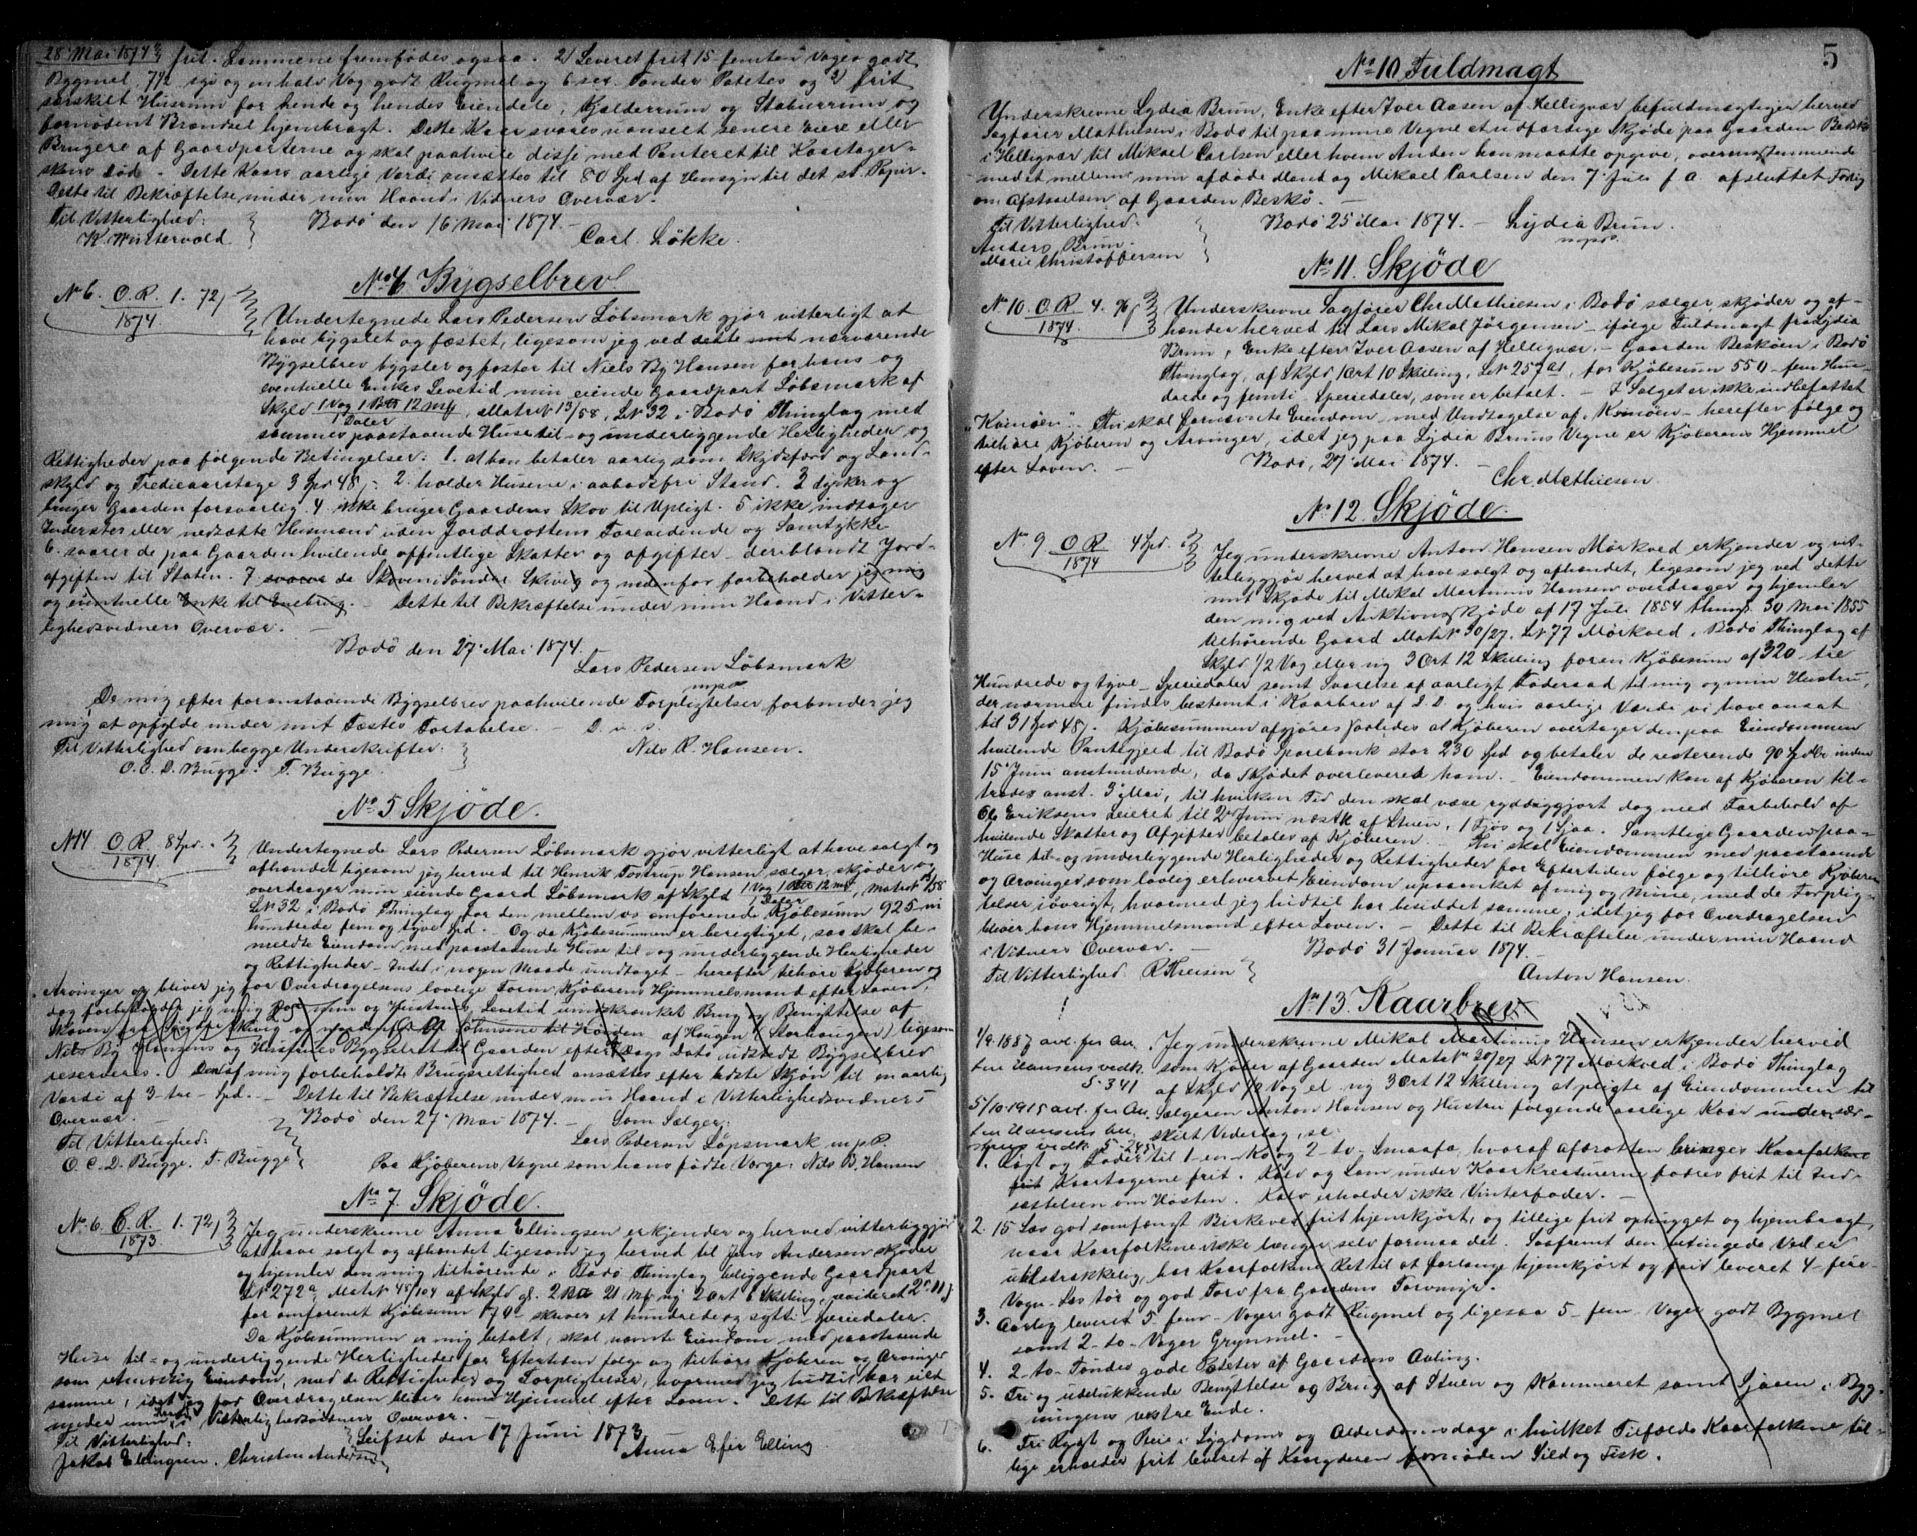 28 Mai 1874 frit. Lammene fremfödes ogsaa. 2) Leveret frit 15 femten Voger godt
Bygmel, 7 1/2 syv og en halv Vog godt Rugmel og 6 sex Tønder Potetes og 3) frit
særskilt Husrum for hende og hendes Eiendele, Kjelderrum og Staburrum og
fornødent Brændsel hjembragt. Dette Kaar svares uanseet senere Eiere eller
Brugere af Gaardparterne og skal paahvile disse med Panteret til Kaartager-
skens Död. Dette Kaars aarlige Værdi ansættes til 80 Spd af Hensyn til det st. Papir.
Dette til Bekræftelse under min Haand i Vidners Overvær.
Til Vitterlighed: Bodö den 16 Mai 1874.
K. Wintervold Carl Lökke.
No 4. Bygselbrev
No 6. O. R. 1. 72 /
1874
Undertegnede Lars Pedersen Löbsmark gjör vitterligt at
have bygslet og fæstet, ligesom jeg ved dette mit nærværende
Bygselbrev bygsler og fæster til Niels By Hansen for hans og
eventuelle Enkes Levetid min eiende Gaardpart Löbsmark af
Skyld 1 Vog 1 Bis 12 mk, Matr No 13/58, LN 32 i Bodö Thinglag med
1 Daler
sammes paastaaende Huse til- og underliggende Herligheder og
Rettigheder paa følgende Betingelser: 1. at han betaler aarlig som Skydsfærd og Land-
skyld og Tredieaarstage 3 Spd 48 /- 2. holder Husene i aabodsfri Stand. 3 dyrker og
bruger Gaarden forsvarlig. 4 ikke bruger Gaardens Skov til Upligt. 5 ikke indtager
Inderster eller nedsætte Husmænd uden Jorddrottens Forevidende og Samtykke
6. svarer de paa Gaarden hvilende offentlige Skatter og afgifter deriblandt Jord-
afgiften til Staten. 7 svares de Skoven i Söndre Skivig og nedenfor forbeholder jeg mig
og eventuelle Enke til Enebrug. Dette til Bekræftelse under min Haand i Vitter-
lighedsvidners Overvær.
Bodö den 27 Mai 1874.
Lars Pedersen Löbsmark
mpa
De mig efter foranstaaende Bygselbrev paahvilende Forpligtelser forbinder jeg
mig at opfylde under mit Festes Fortabelse. D. u. s.
Til Vitterlighed om begge Underskrifter: Nils R. Hansen.
O. C. D. Bugge. T. Bugge.
No 5 Skjöde.
N 14 O. R. 8 Spd.
1874.
Undertegnede Lars Pedersen Löbsmark gjör vitterligt at have solgt og
afhændet ligesom jeg herved til Henrik Tostrup Hansen sælger, skjöder og
overdrager min eiende Gaard Löbsmark af Skyld 1 Vog 1 Bis 12 mk, Matr No 13/58
1 Daler
LN 32 i Bodö Thinglag for den mellem os omforenede Kjöbesum 925 ni
hundrede fem og tyve Spd. Og da Kjöbesummen er berigtiget, saa skal be-
meldte Eiendom med paastaaende Huse til- og underliggende Herligheder
og Rettigheder - Intet i nogen Maade undtaget - herefter tilhöre Kjöberen og
Arvinger og bliver jeg for Overdragelsens lovlige Form Kjöberens Hjemmelsmand efter Loven,
dog forbeholder jeg mig for min og Hustrues Levetid uindskrænket Brug og Benyttelse af
Skoven til Husene til Hanen af Haugen (Storhaugen) ligesom
Nils By Hansens og Hustrues Bygselret til Gaarden efter Dags Dato udstedt Bygselbrev
reserveres. Den af mig forbeholdte Brugsrettighed ansættes efter bedste Skjön til en aarlig
Værdi af 3-tre- Spd. Dette til Bekræftelse under min Haand i Vitterlighedsvidners
Overvær. Bodö den 27 Mai 1874. Som Sælger:
Til Vitterlighed: Lars Pedersen Löpsmark m. p. P.
O. C. D. Bugge. T. Bugge Paa Kjöberens Vegne som hans födte Verge: Nils B. Hansen
No 7. Skjöde.
No. 6. O. R. 1. 72 /
1873
Jeg underskrevne Anna Ellingsen erkjender og herved vitterliggjör
at have solgt og afhændet ligesom jeg herved til Jens Andersen skjöder
og hjemler den mig tilhörende i Bodö Thinglag beliggende Gaardpart
LN 272a, Matr No 48/104 af Skyld gl. 2 Bis 21 mk, ny 2 ort 6 Skilling, revideret 2" 11 /
for omforenet Kjöbesum 170 - skriver et hundrede og sytti - Speciedaler.
Da Kjöbesummen er mig betalt, skal nævnte Eiendom med paastaaende
Huse til- og underliggende Herligheder for Eftertiden følge og tilhöre Kjöberen og Arvinger
som retmæssig Eiendom, med de Rettigheder og Forpligtelser, hvormed jeg hidtil har eiet
samme, idet jeg for Overdragelsen bliver hans Hjemmel efter Loven. Dette til Bekræftelse
under min Haand i Vitterlighedsvidners Overvær.
Til Vitterlighed: Leifset den 17 Juni 1873
Jakob Ellingsen. Christen Andersen Anna Efir Elling
5
No 10 Fuldmagt
Underskrevne Lydia Brun, Enke efter Iver Aasen af Helligvær befuldmægtiger herved
Sagförer Mathiesen i Bodö til paa mine Vegne at udfærdige Skjöde paa Gaarden Beskö
i Helligvær til Mikael Carlsen eller hvem Anden han maatte opgive, overensstemmende
med et mellem min afdöde Mand og Mikael Carlsen den 7 Juli f. A. afsluttet Forlig
om Afstaaelsen af Gaarden Beskö.
Til Vitterlighed: Bodö 25 Mai 1874. - Lydia Brun.
Anders Brun. mps.
Marie Christoffersen
No 11. Skjöde
No 10. O R 4. 96 /
1874.
Underskrevne Sagförer Chr. Mathiesen i Bodö sælger, skjöder og af-
hænder herved til Lars Mikal Jörgensen - ifölge Fuldmagt fra Lydia
Brun, Enke efter Iver Aasen af Helligvær. - Gaarden Besköen i Bodö
Thinglag, af Skyld 1 ort 10 Skilling, LN 257a1, for Kjöbesum 550 - fem Hun-
drede og femti - Speciedaler, som er betalt. - I Salget er ikke indbefattet
"Kvinöen". Thi skal fornævnte Eiendom med Undtagelse af Kvinöen - herefter følge og
tilhöre Kjöberen og Arvinger, idet jeg paa Lydia Bruns Vegne er Kjöberens Hjemmel
efter Loven. - Bodö, 27 Mai 1874. -
Chr. Mathiesen
No 12. Skjöde.
No 9 O R 4 Spd.
1874
Jeg underskrevne Anton Hansen Mörkved erkjender og vit-
terliggjör herved at have solgt og afhændet, ligesom jeg ved dette
mit Skjöde til Mikal Martinus Hansen overdrager og hjemler
den mig ved Auktionsskjöde af 17 Juli 1854 thingl. 30 Mai 1855
tilhörende Gaard Matr No 30/27, LN 77 Mörkved i Bodö Thinglag af
Skyld 1/2 Vog eller ny 3 Ort 12 Skilling for en Kjöbesum af 320 - tre
Hundrede og tyve - Speciedaler samt Svarelse af aarligt Föderaad til mig og min Hustru,
der nærmere findes bestemt i Kaarbrev af D. D. og hvis aarlige Værdi vi have ansat
til 31 Spd 48 /. Kjöbesummen afgjöres saaledes at Kjöberen overtager den paa Eiendommen
hvilende Pantegjeld til Bodö Sparebank stor 230 Spd og betaler de resterende 90 Spdlr inden
15 Juni anstundende, da Skjödet overleveres ham. - Eiendommen kan af Kjöberen til-
trædes anst. 3 Mai, til hvilken Tid den skal være ryddiggjort dog med Forbehold af
Ole Eriksens Leieret til 2 Juni næstk. af Stuen, 1 Fjøs og 1 Sjaa. Samtlige Gaarden paa-
hvilende Skatter og Afgifter betales af Kjöberen. Thi skal Eiendommen med paastaaende
Huse til- og underliggende Herligheder og Rettigheder for Eftertiden følge og tilhöre Kjöberen
og Arvinger som lovlig erhvervet Eiendom upaaanket af mig og Mine, med de Forplig-
telser iövrigt, hvormed jeg hidtil har besiddet samme, idet jeg for Overdragelsen
bliver hans Hjemmelsmand efter Loven. - Dette til Bekræftelse under min Haand
i Vidners Overvær. - Bodö 31 Januar 1874. -
Til Vitterlighed: R Thiesen Anton Hansen.
No 13. Kaarbrev
1/9 1887 avl. for An-
tere Hansens vedk.
5. 341
5/10 1915 avl. for An.
ten Hansens
vedk. 5-245
Jeg underskrevne Mikal Martinus Hansen erkjender herved
som Kjöber af Gaarden Matr No 30/27 LN 77 Mörkved i Bodö Thinglag
af Skyld 1/2 Vog el. ny 3 Ort 12 Skilling at pligte af Eiendommen til
Sælgeren Anton Hansen og Hustru følgende aarlige Kaar under sær-
skilt Vederlag, se:
1. Røgt og Foder til 1 - en - Ko og 2 - to - Smaafæ, hvoraf Afdrotten bringes Kaarfolkene
frit Kaartagerne frit. Kalv og Lam under Kaarkreaturerne fødres frit til Ind-
sættelsen om Hösten. Kalv erholder ikke Vinterfoder. -
2. 15 Læs god somfangt Birkeved frit hjemkjört, og tillige frit ophugget og hjembragt,
naar Kaarfolkene ikke længer selv formaa det. Saafremt den betingede Ved er
utilstrækkelig, har Kaarfolkene Ret til at forlange hjemkjört og frit leveret 4 - fire -
Vogn-Læs tör og god Torv fra Gaardens Torvmyr.
3. Aarlig leveret 5 - fem - Voger godt Rugmel og ligesaa 5 - fem - Voger godt Bygmel
samt 2 - to - Voger Grynmel. -
4. 2 - to - Tønder gode Poteter af Gaardens Avling.
5. Fri og udelukkende Benyttelse og Brug af Stuen og Kammeret samt Sjaaen i Byg-
ningens vestre Ende.
6. Fri Røgt og Pleie i Sygdoms og Alderdomsdage i hvilket Tilfælde Kaarfolkene til-
lige erholder frit leveret af Kaaryderen fornöden Sild og Fisk.